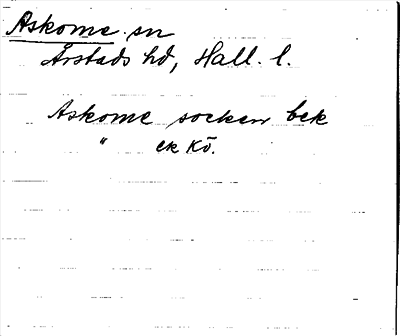 Askome sn
Årstads hd, Hall. l.
Askome socken bek
" ek Kō.